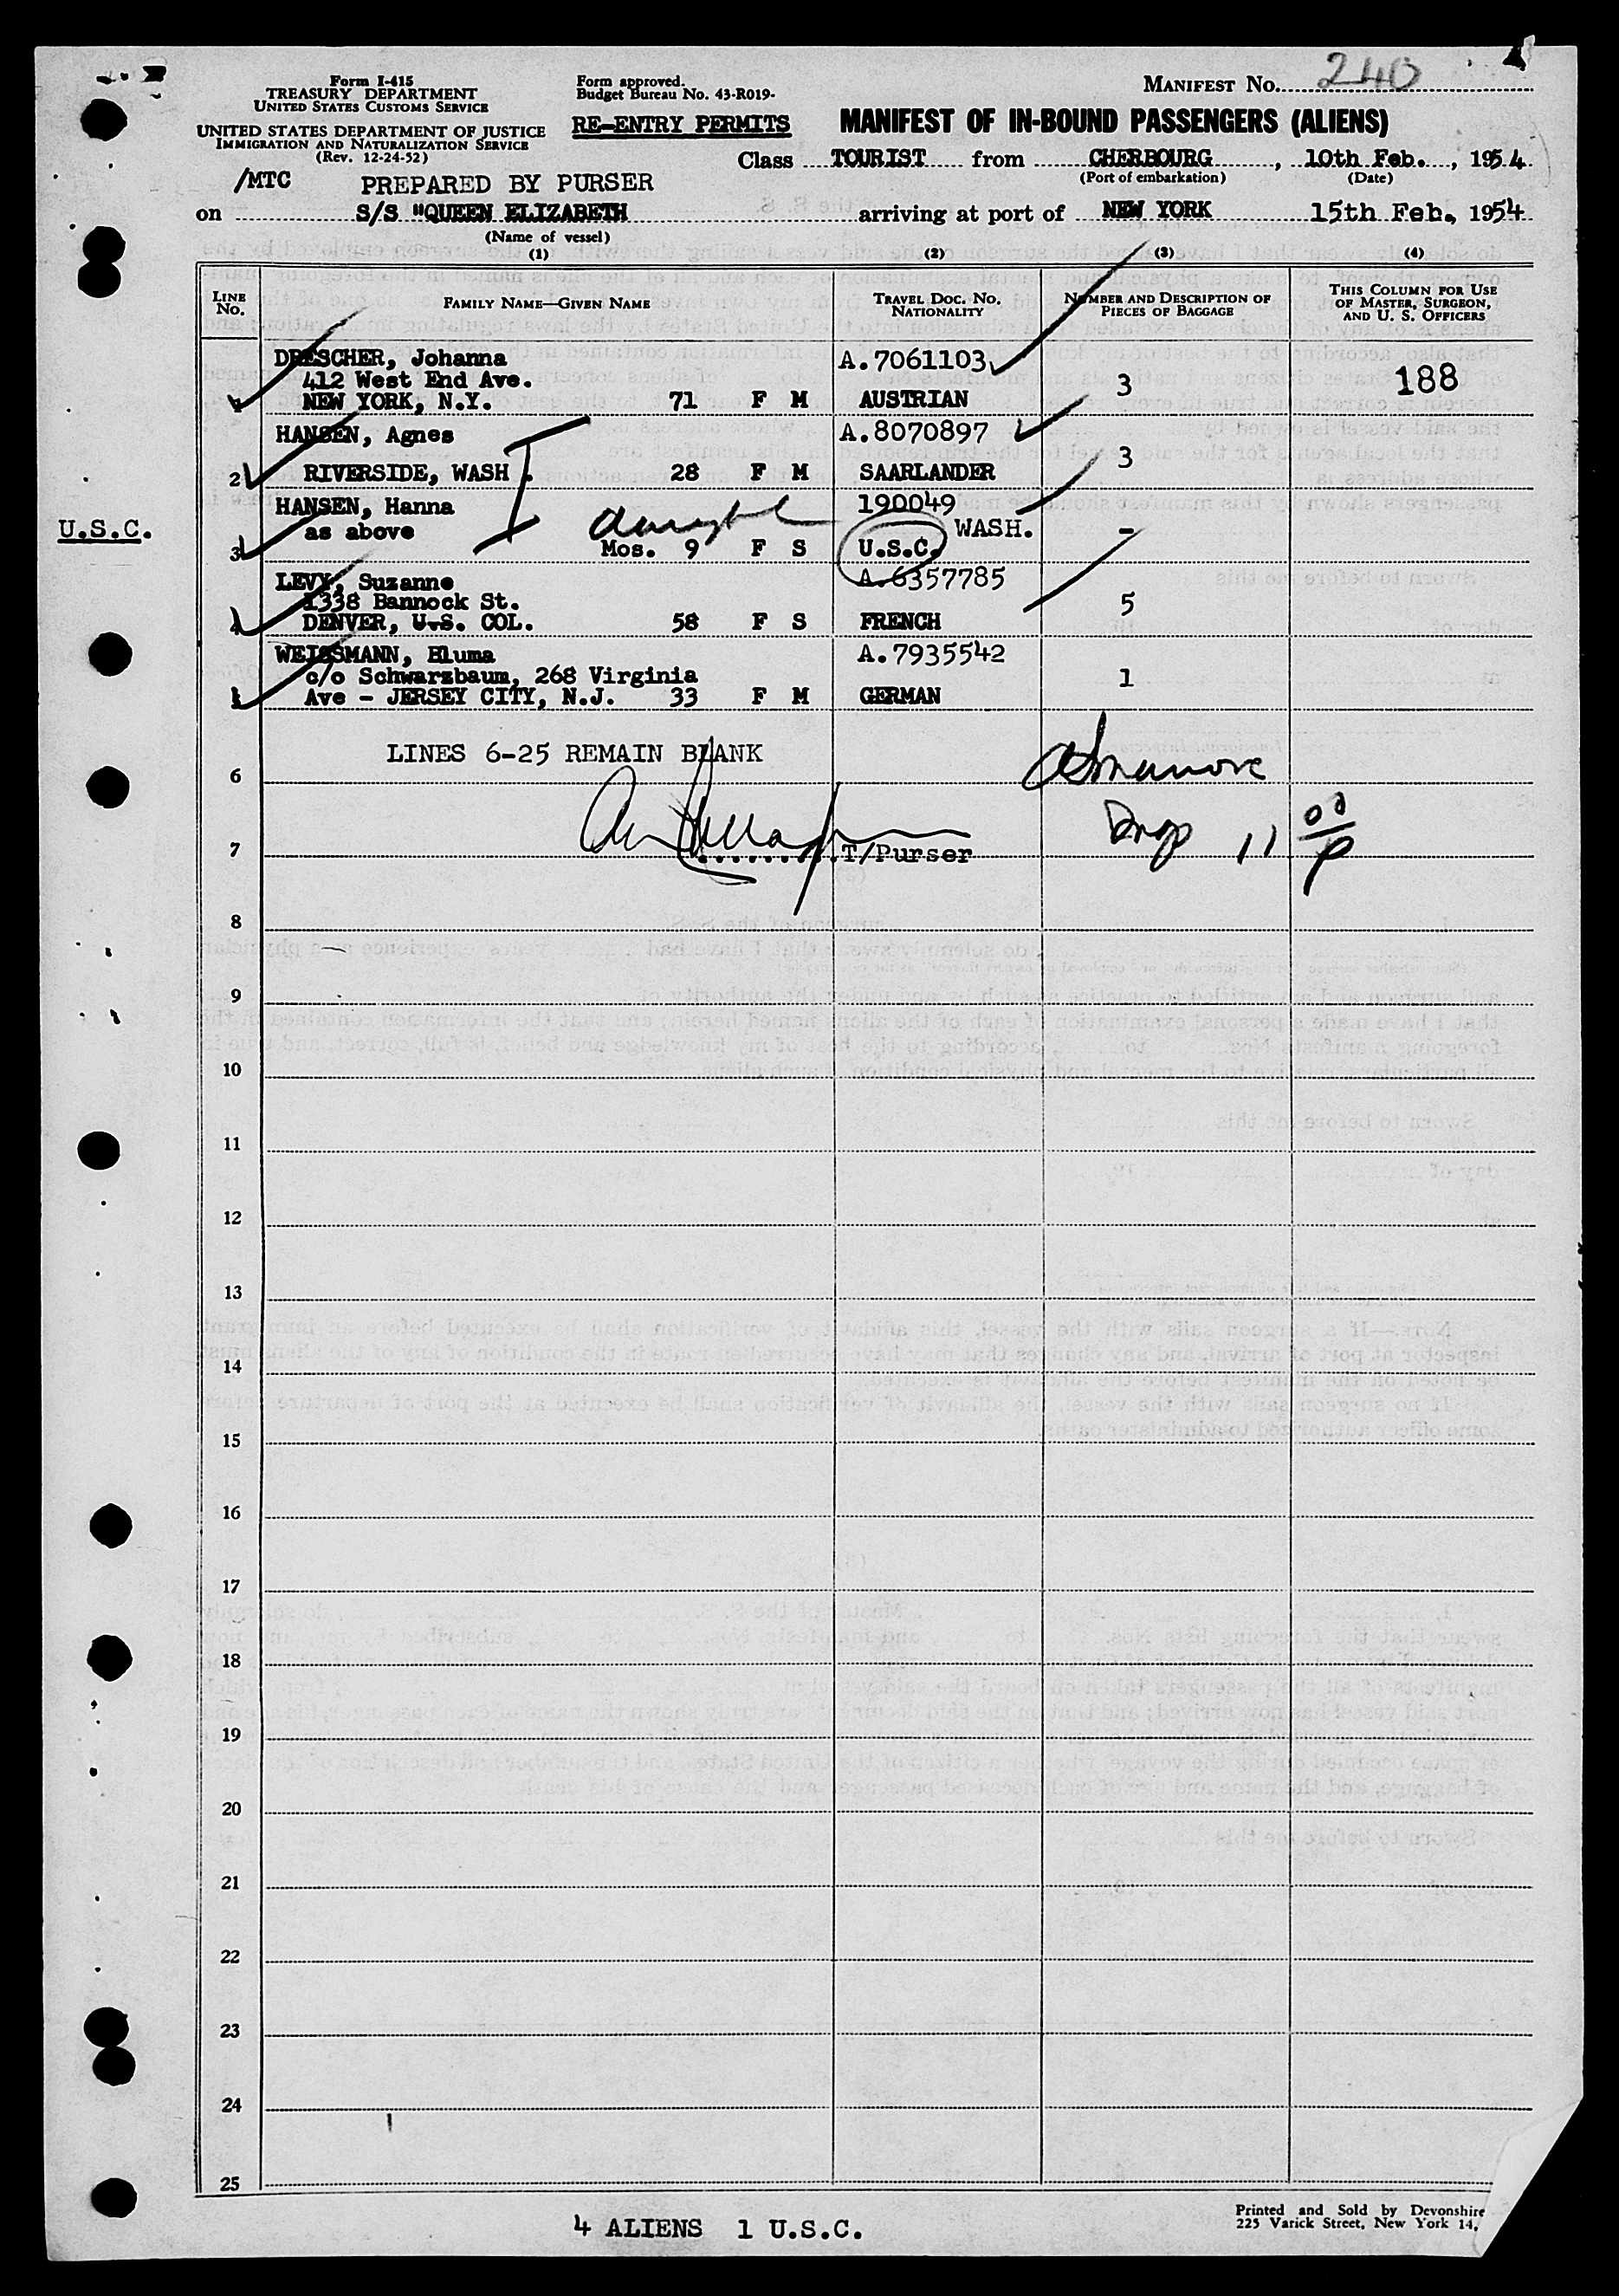 Form I-415
TREASURY DEPARTMENT
UNITED STATES CUSTOMS SERVICE
UNITED STATES DEPARTMENT OF JUSTICE
IMMIGRATION AND NATURALIZATION SERVICE
(Rev. 12-24-52)
Form approved.
Budget Bureau No. 43-R019-
RE-ENTRY PERMITS
MANIFEST NO. 240
MANIFEST OF IN-BOUND PASSENGERS (ALIENS)
Class TOURIST from CHERBOURG, 10th Feb., 1954
(Port of embarkation) (Date)
/MTC PREPARED BY PURSER
on S/S "QUEEN ELIZABETH arriving at port of NEW YORK 15th Feb., 1954
(Name of vessel)
(1) (2) (3) (4)
LINE NO. FAMILY NAME—GIVEN NAME TRAVEL DOC. NO. NATIONALITY NUMBER AND DESCRIPTION OF PIECES OF BAGGAGE THIS COLUMN FOR USE OF MASTER, SURGEON, AND U. S. OFFICERS
DRESCHER, Johanna A.7061103
412 West End Ave. 3 188
NEW YORK, N.Y. 71 F M AUSTRIAN
HANSEN, Agnes A.8070897
2 RIVERSIDE, WASH. 28 F M SAARLANDER 3
HANSEN, Hanna 190049
U.S.C. as above WASH. -
3 Mos. 9 F S U.S.C.
LEVY, Suzanne A.6357785
1338 Bannock St. 5
4 DENVER, U.S. COL. 58 F S FRENCH
WEISSMANN, Bluma A.7935542
c/o Schwarzbaum, 268 Virginia 1
Ave - JERSEY CITY, N.J. 33 F M GERMAN
LINES 6-25 REMAIN BLANK
6
7 T/Purser 11 00/P
8
9
10
11
12
13
14
15
16
17
18
19
20
21
22
23
24
25
4 ALIENS 1 U.S.C.
Printed and Sold by Devonshire
225 Varick Street, New York 14,